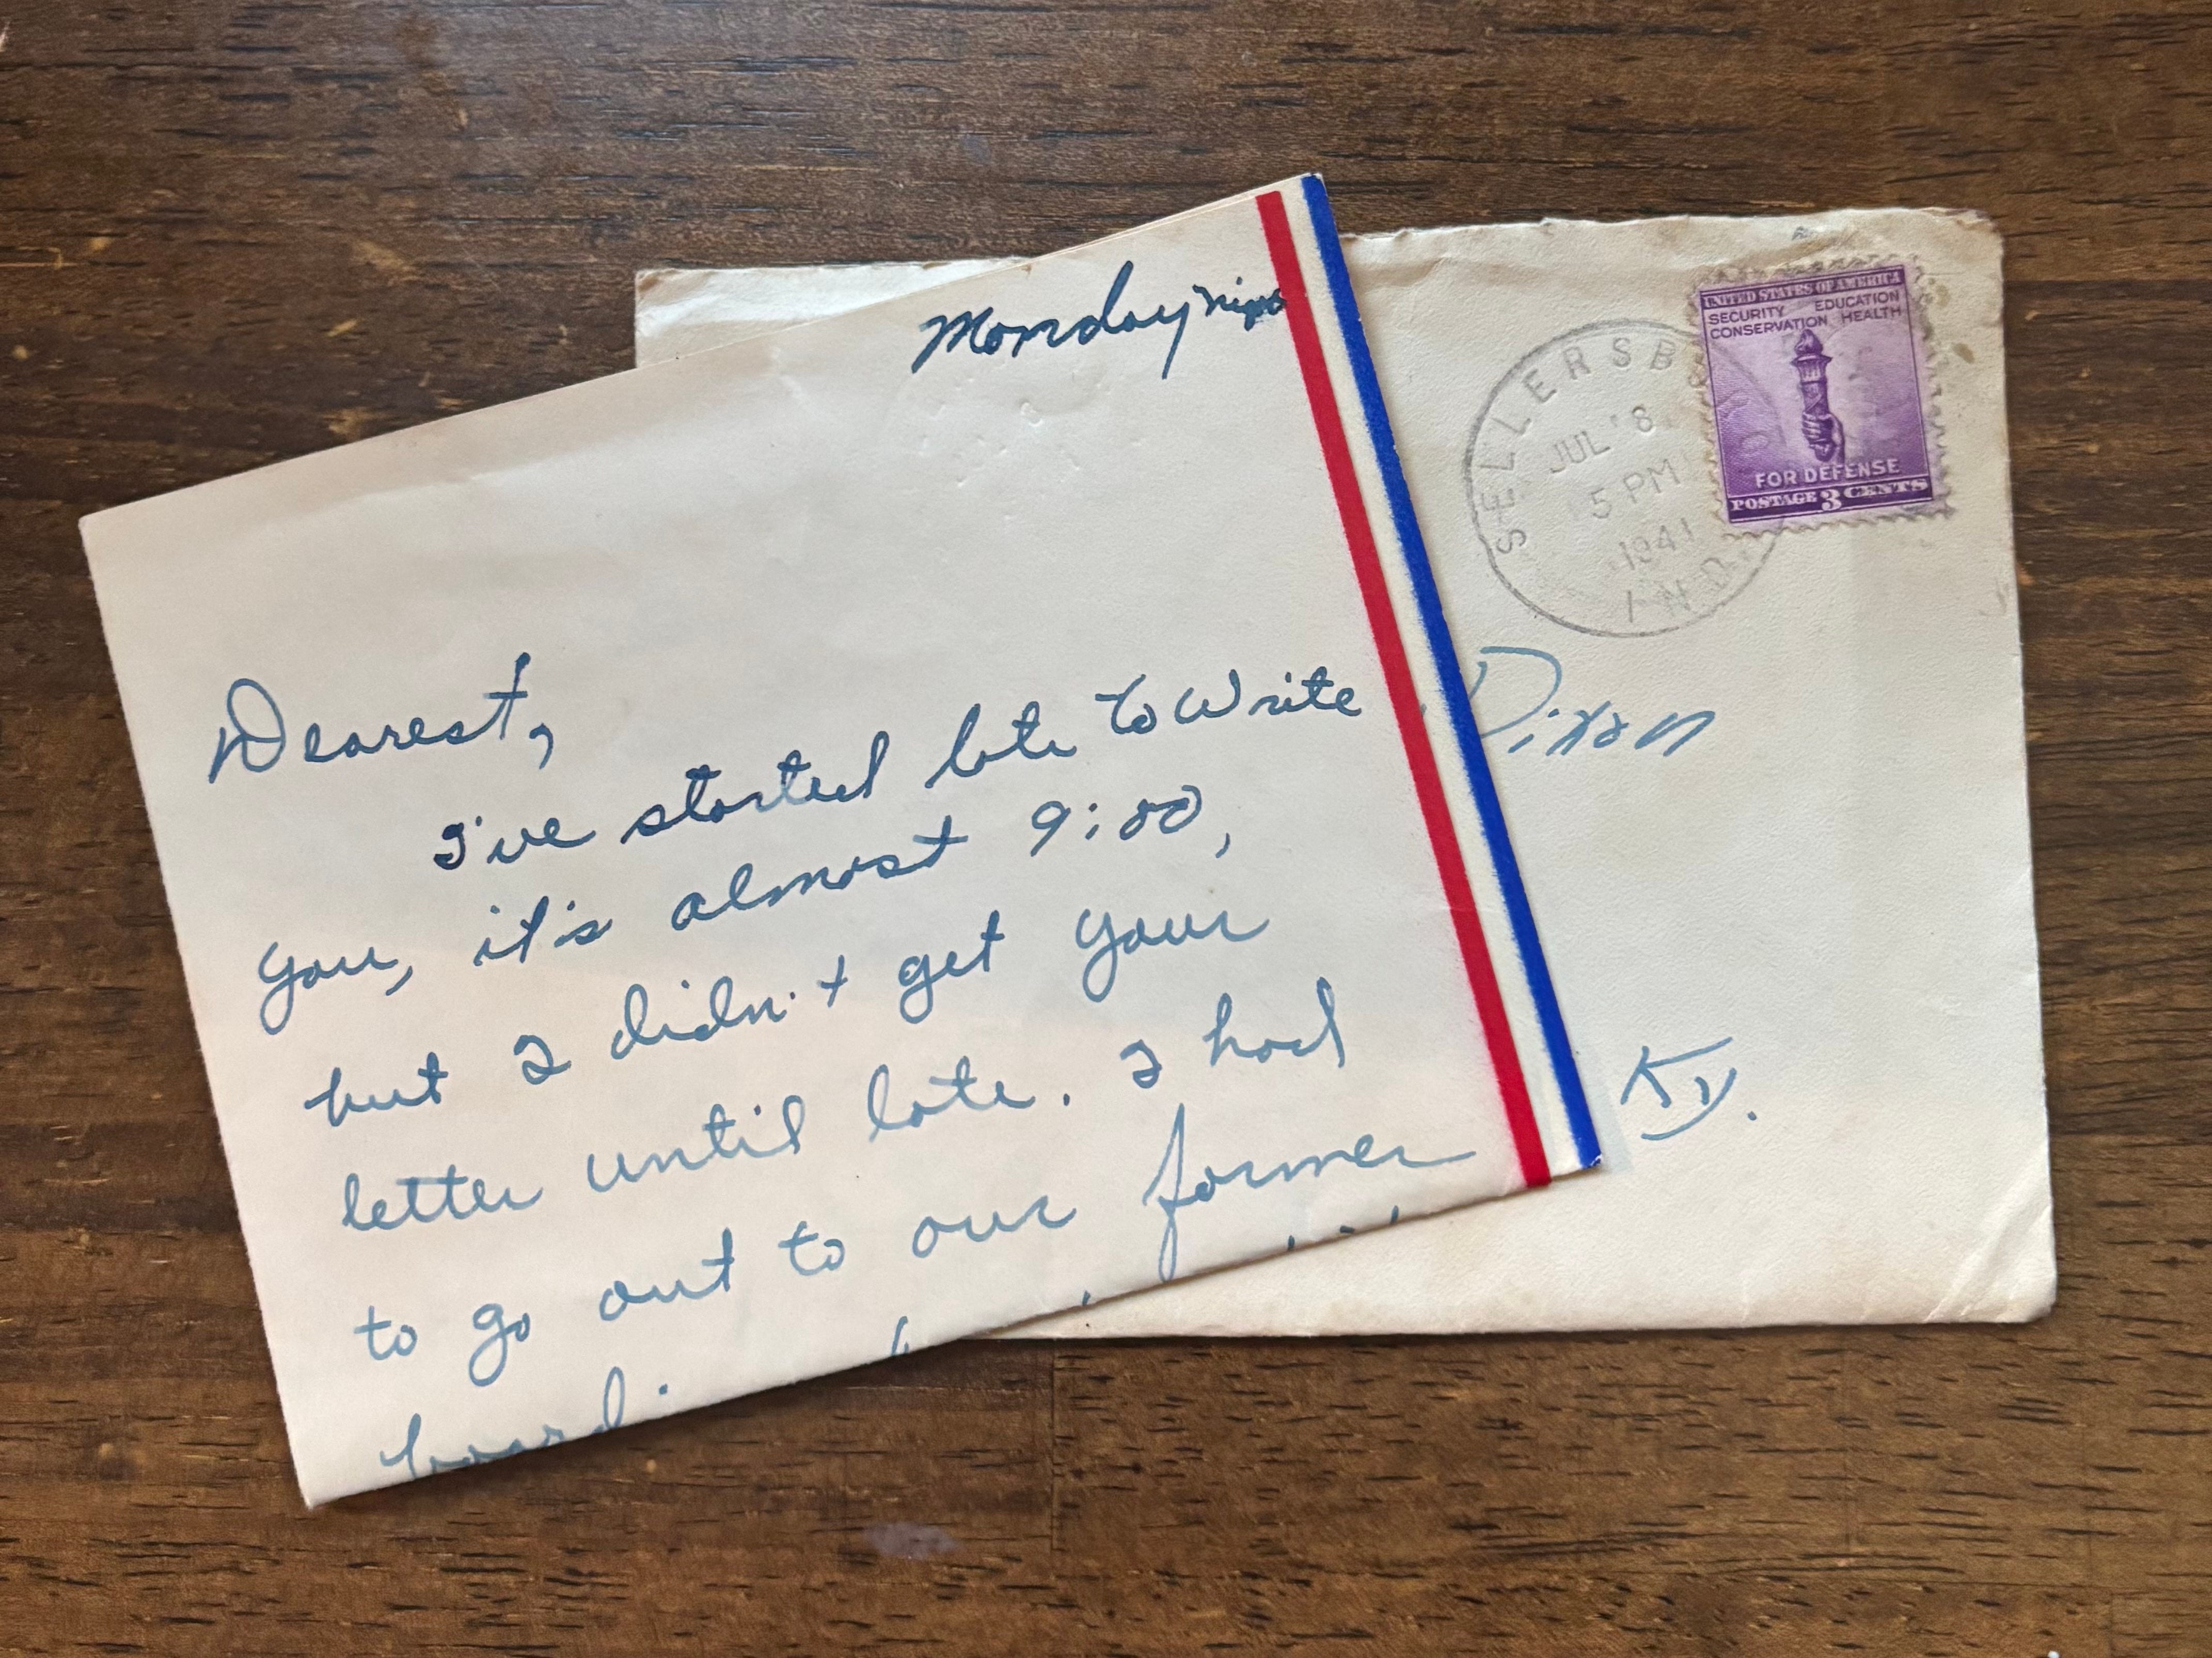 Monday
Dearest,
I've started late to write
you, it's almost 9:00,
but I didn't get your
letter until late. I had
to go out to our former
UNITED STATES OF AMERICA
SECURITY EDUCATION
CONSERVATION HEALTH
FOR DEFENSE
POSTAGE 3 CENTS
SELLERSB
JUL 8
5 PM
1941
IND.
Dixon
Ky.